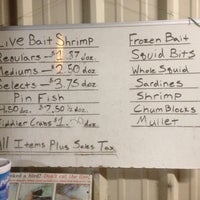 Live Bait Shrimp
Regulars - $1.57 doz.
Mediums - $2.50 doz
Selects - $3.75 doz
Pin Fish
4.50 doz. $7.50 ½ doz
Fiddler Crabs $1.50 doz
All Items Plus Sales Tax
Frozen Bait
Squid Bits
Whole Squid
Sardines
Shrimp
Chum Blocks
Mullet